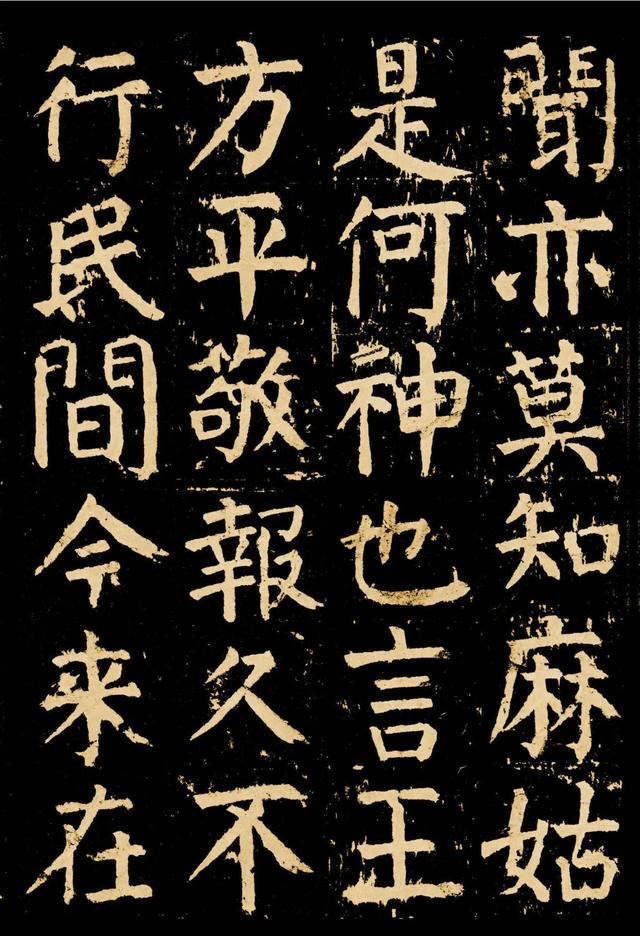 聞亦莫知麻姑
是何神也言王
方平敬報久不
行民間今来在